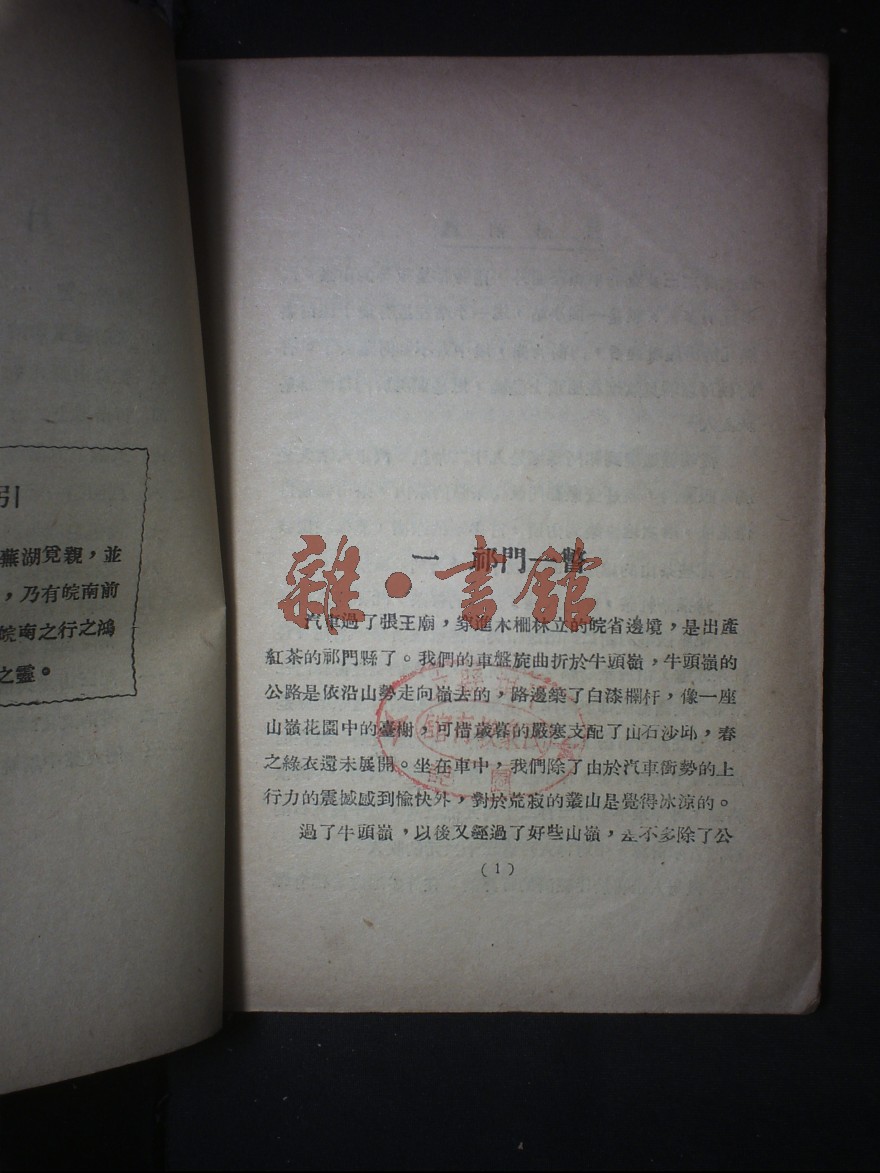 引
蕪湖覓親，並
，乃有皖南前
皖南之行之鴻
之靈。
雜·書館
一 祁門一瞥
汽車過了張王廟，穿進木柵林立的皖省邊境，是出產
紅茶的祁門縣了。我們的車盤旋曲折於牛頭嶺，牛頭嶺的
公路是依沿山勢走向嶺去的，路邊築了白漆欄杆，像一座
山嶺花園中的臺榭，可惜歲暮的嚴寒支配了山石沙邱，春
之綠衣還未展開。坐在車中，我們除了由於汽車衝勢的上
行力的震撼感到愉快外，對於荒寂的叢山是覺得冰涼的。
過了牛頭嶺，以後又經過了好些山嶺，差不多除了公
（1）